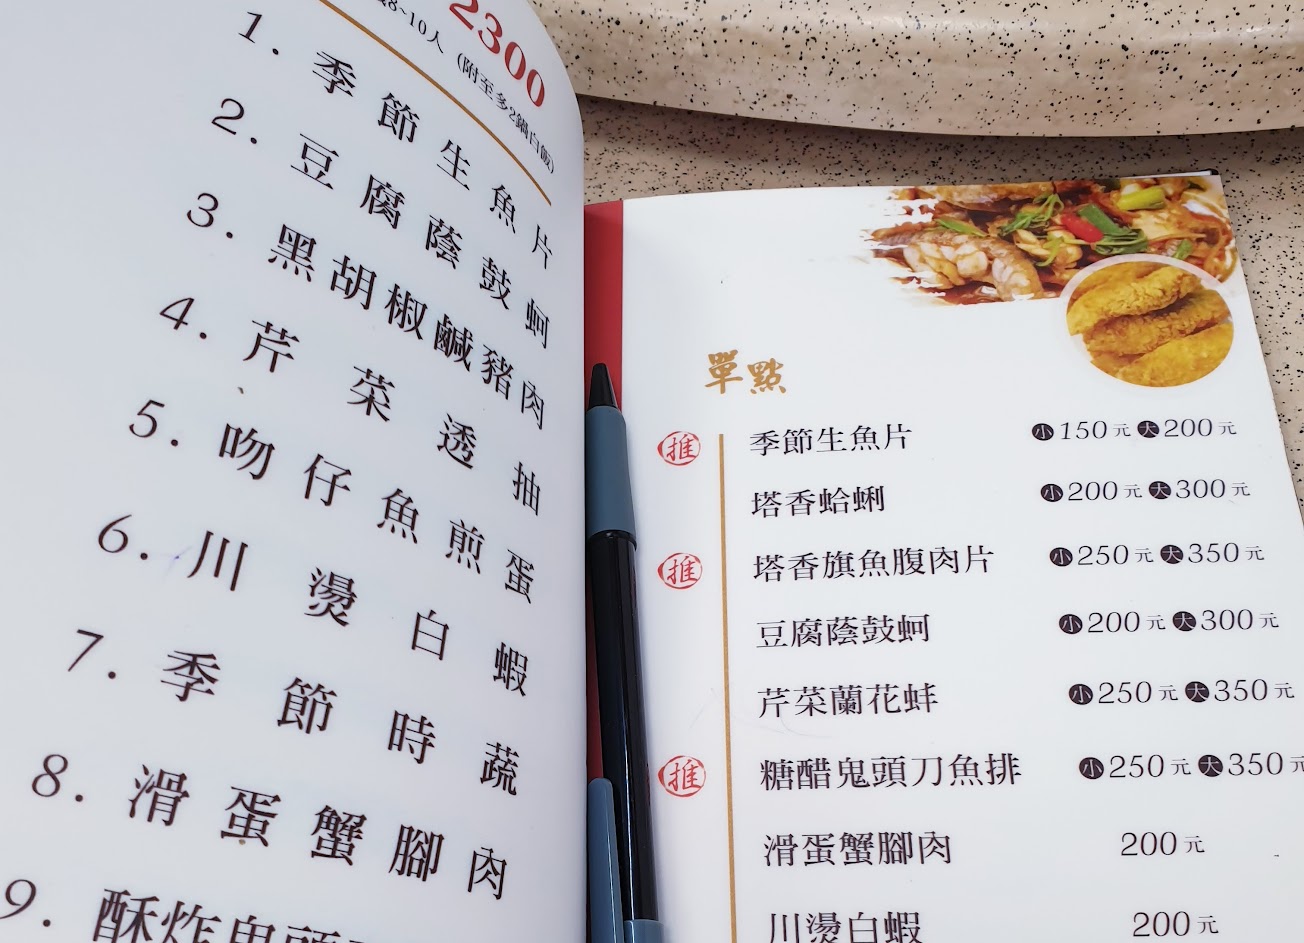 2300
8~10人 (附至多2鍋白飯)
1. 季節生魚片
2. 豆腐蔭鼓蚵
3. 黑胡椒鹹豬肉
4. 芹菜透抽
5. 吻仔魚煎蛋
6. 川燙白蝦
7. 季節時蔬
8. 滑蛋蟹腳肉
9. 酥炸鬼頭
單點
推 季節生魚片 小150元 大200元
塔香蛤蜊 小200元 大300元
推 塔香旗魚腹肉片 小250元 大350元
豆腐蔭鼓蚵 小200元 大300元
芹菜蘭花蚌 小250元 大350元
推 糖醋鬼頭刀魚排 小250元 大350元
滑蛋蟹腳肉 200元
川燙白蝦 200元